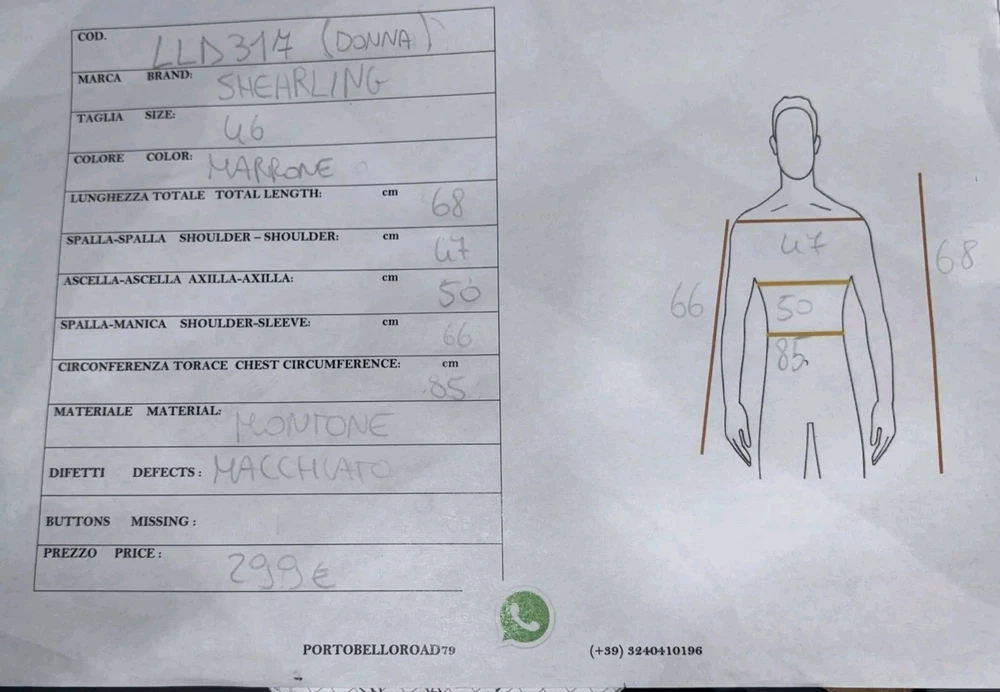 COD. LLD317 (DONNA)
MARCA BRAND: SHEARLING
TAGLIA SIZE: 46
COLORE COLOR: MARRONE
LUNGHEZZA TOTALE TOTAL LENGTH: cm 68
SPALLA-SPALLA SHOULDER – SHOULDER: cm 47
ASCELLA-ASCELLA AXILLA-AXILLA: cm 50
SPALLA-MANICA SHOULDER-SLEEVE: cm 66
CIRCONFERENZA TORACE CHEST CIRCUMFERENCE: cm 85
MATERIALE MATERIAL: MONTONE
DIFETTI DEFECTS: MACCHIATO
BUTTONS MISSING:
PREZZO PRICE: 299€
47
68
66
50
85
PORTOBELLOROAD79 (+39) 3240410196